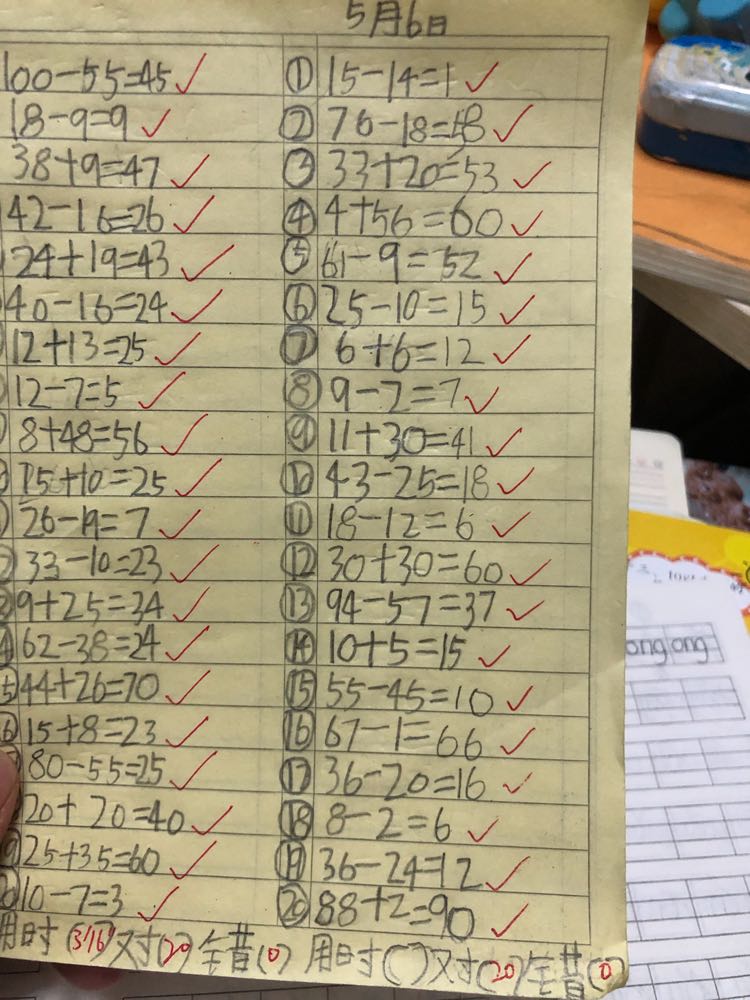 5月6日
100-55=45
18-9=9
38+9=47
42-16=26
24+19=43
40-16=24
12+13=25
12-7=5
8+48=56
15+10=25
26-19=7
33-10=23
9+25=34
62-38=24
44+26=70
15+8=23
80-55=25
20+20=40
25+35=60
10-7=3
用时(3'16")对(20)错(0)
① 15-14=1
② 76-18=58
③ 33+20=53
④ 4+56=60
⑤ 61-9=52
⑥ 25-10=15
⑦ 6+6=12
⑧ 9-2=7
⑨ 11+30=41
⑩ 43-25=18
⑪ 18-12=6
⑫ 30+30=60
⑬ 94-57=37
⑭ 10+5=15
⑮ 55-45=10
⑯ 67-1=66
⑰ 36-20=16
⑱ 8-2=6
⑲ 36-24=12
⑳ 88+2=90
用时( )对(20)错(0)
ong ong